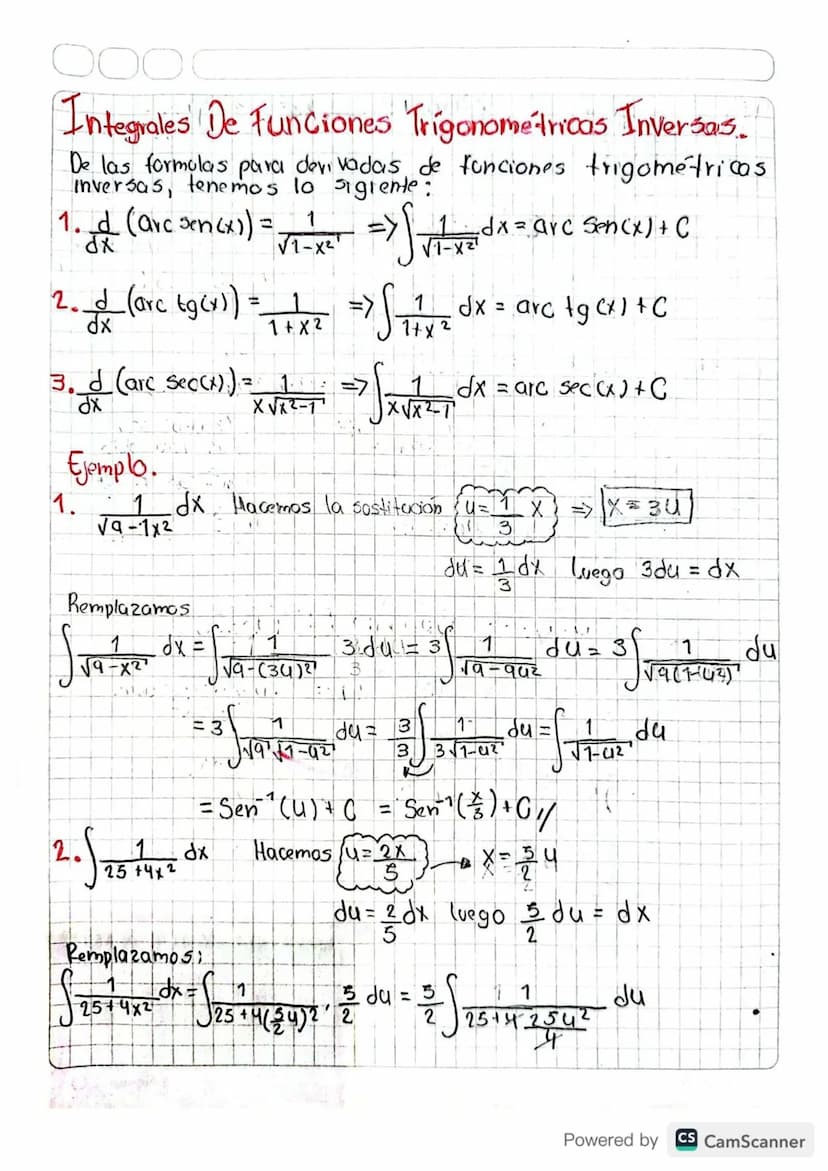 Integrales De Funciones Trigonométricas Inversas.
De las formulas para derivadas de funciones trigométricas
inversas, tenemos lo sigiente:
1. d/dx (arc sen(x)) = 1/√(1-x²) => ∫ 1/√(1-x²) dx = arc Sen(x) + C
2. d/dx (arc tg(x)) = 1/(1+x²) => ∫ 1/(1+x²) dx = arc tg(x) + C
3. d/dx (arc sec(x)) = 1/(x√(x²-1)) => ∫ 1/(x√(x²-1)) dx = arc sec(x) + C
Ejemplo.
1. 1/√(9-1x²) dx. Hacemos la sostitución u = 1/3 x => x = 3u
du = 1/3 dx luego 3du = dx
Remplazamos
∫ 1/√(9-x²) dx = ∫ 1/√(9-(3u)²) 3 du = 3∫ 1/√(9-9u²) du = 3∫ 1/√(9(1-u²)) du
= 3∫ 1/(√9 √(1-u²)) du = 3/3 ∫ 1/(3√(1-u²)) du = ∫ 1/√(1-u²) du
= Sen⁻¹(u) + C = Sen⁻¹(x/3) + C //
2. ∫ 1/(25+4x²) dx Hacemos u = 2x/5 → x = 5/2 u
du = 2/5 dx luego 5/2 du = dx
Remplazamos:
∫ 1/(25+4x²) dx = ∫ 1/(25+4(5/2 u)²) · 5/2 du = 5/2 ∫ 1/(25+4 25u²/4) du
Powered by CS CamScanner